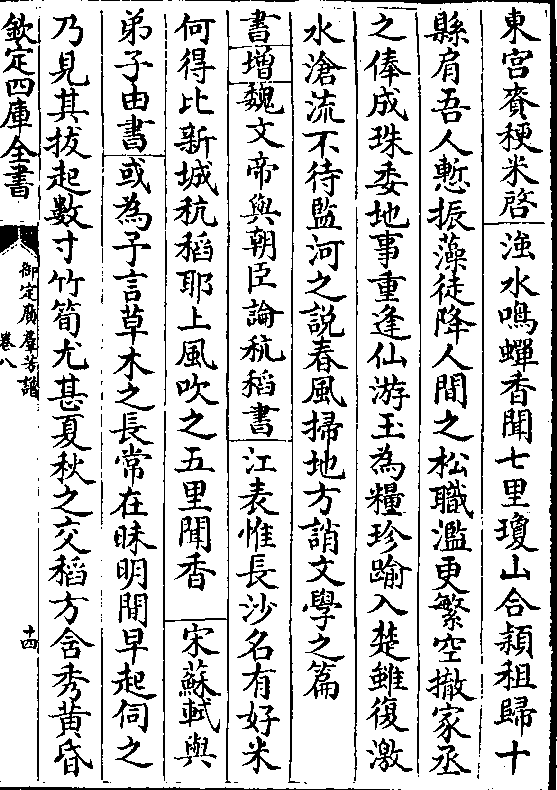 東宮賚粳米啓 滍水鳴蟬香聞七里瓊山合穎租歸十
縣肩吾人慙振藻徒降人間之松職濫更繁空撤家丞
之俸成珠委地事重逢仙游玉為糧珍踰入楚雖復激
水滄流不待監河之說春風掃地方誚文學之篇
書增魏文帝與朝臣論秔稻書 江表惟長沙名有好米
何得比新城秔稻耶上風吹之五里聞香 宋蘇軾與
弟子由書 或為予言草木之長常在昧明間早起伺之
乃見其拔起數寸竹筍尤甚夏秋之交稻方含秀黃昏
欽定四庫全書
御定廣羣芳譜
卷八
十四